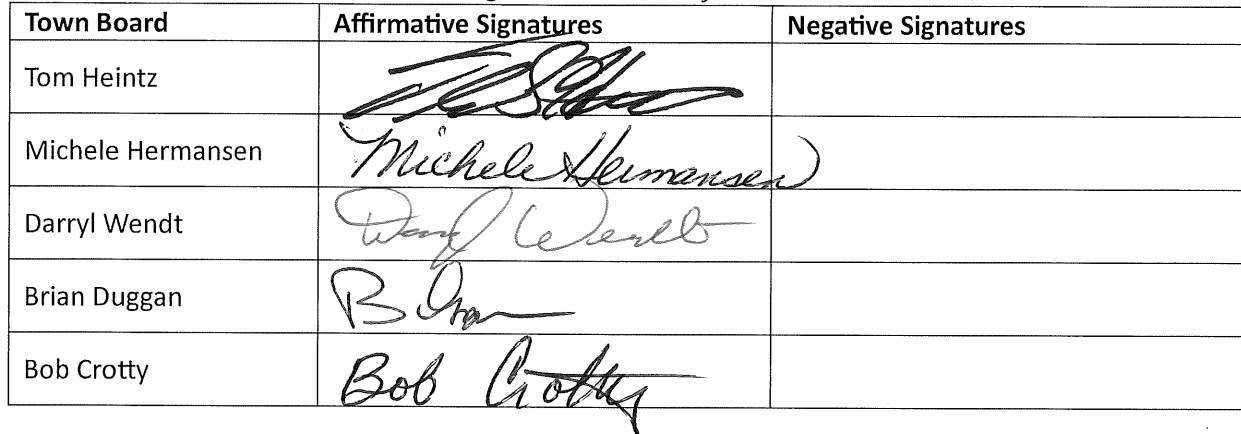 Town Board Affirmative Signatures Negative Signatures
Tom Heintz
Michele Hermansen Michele Hermansen
Darryl Wendt Darryl Wendt
Brian Duggan
Bob Crotty Bob Crotty